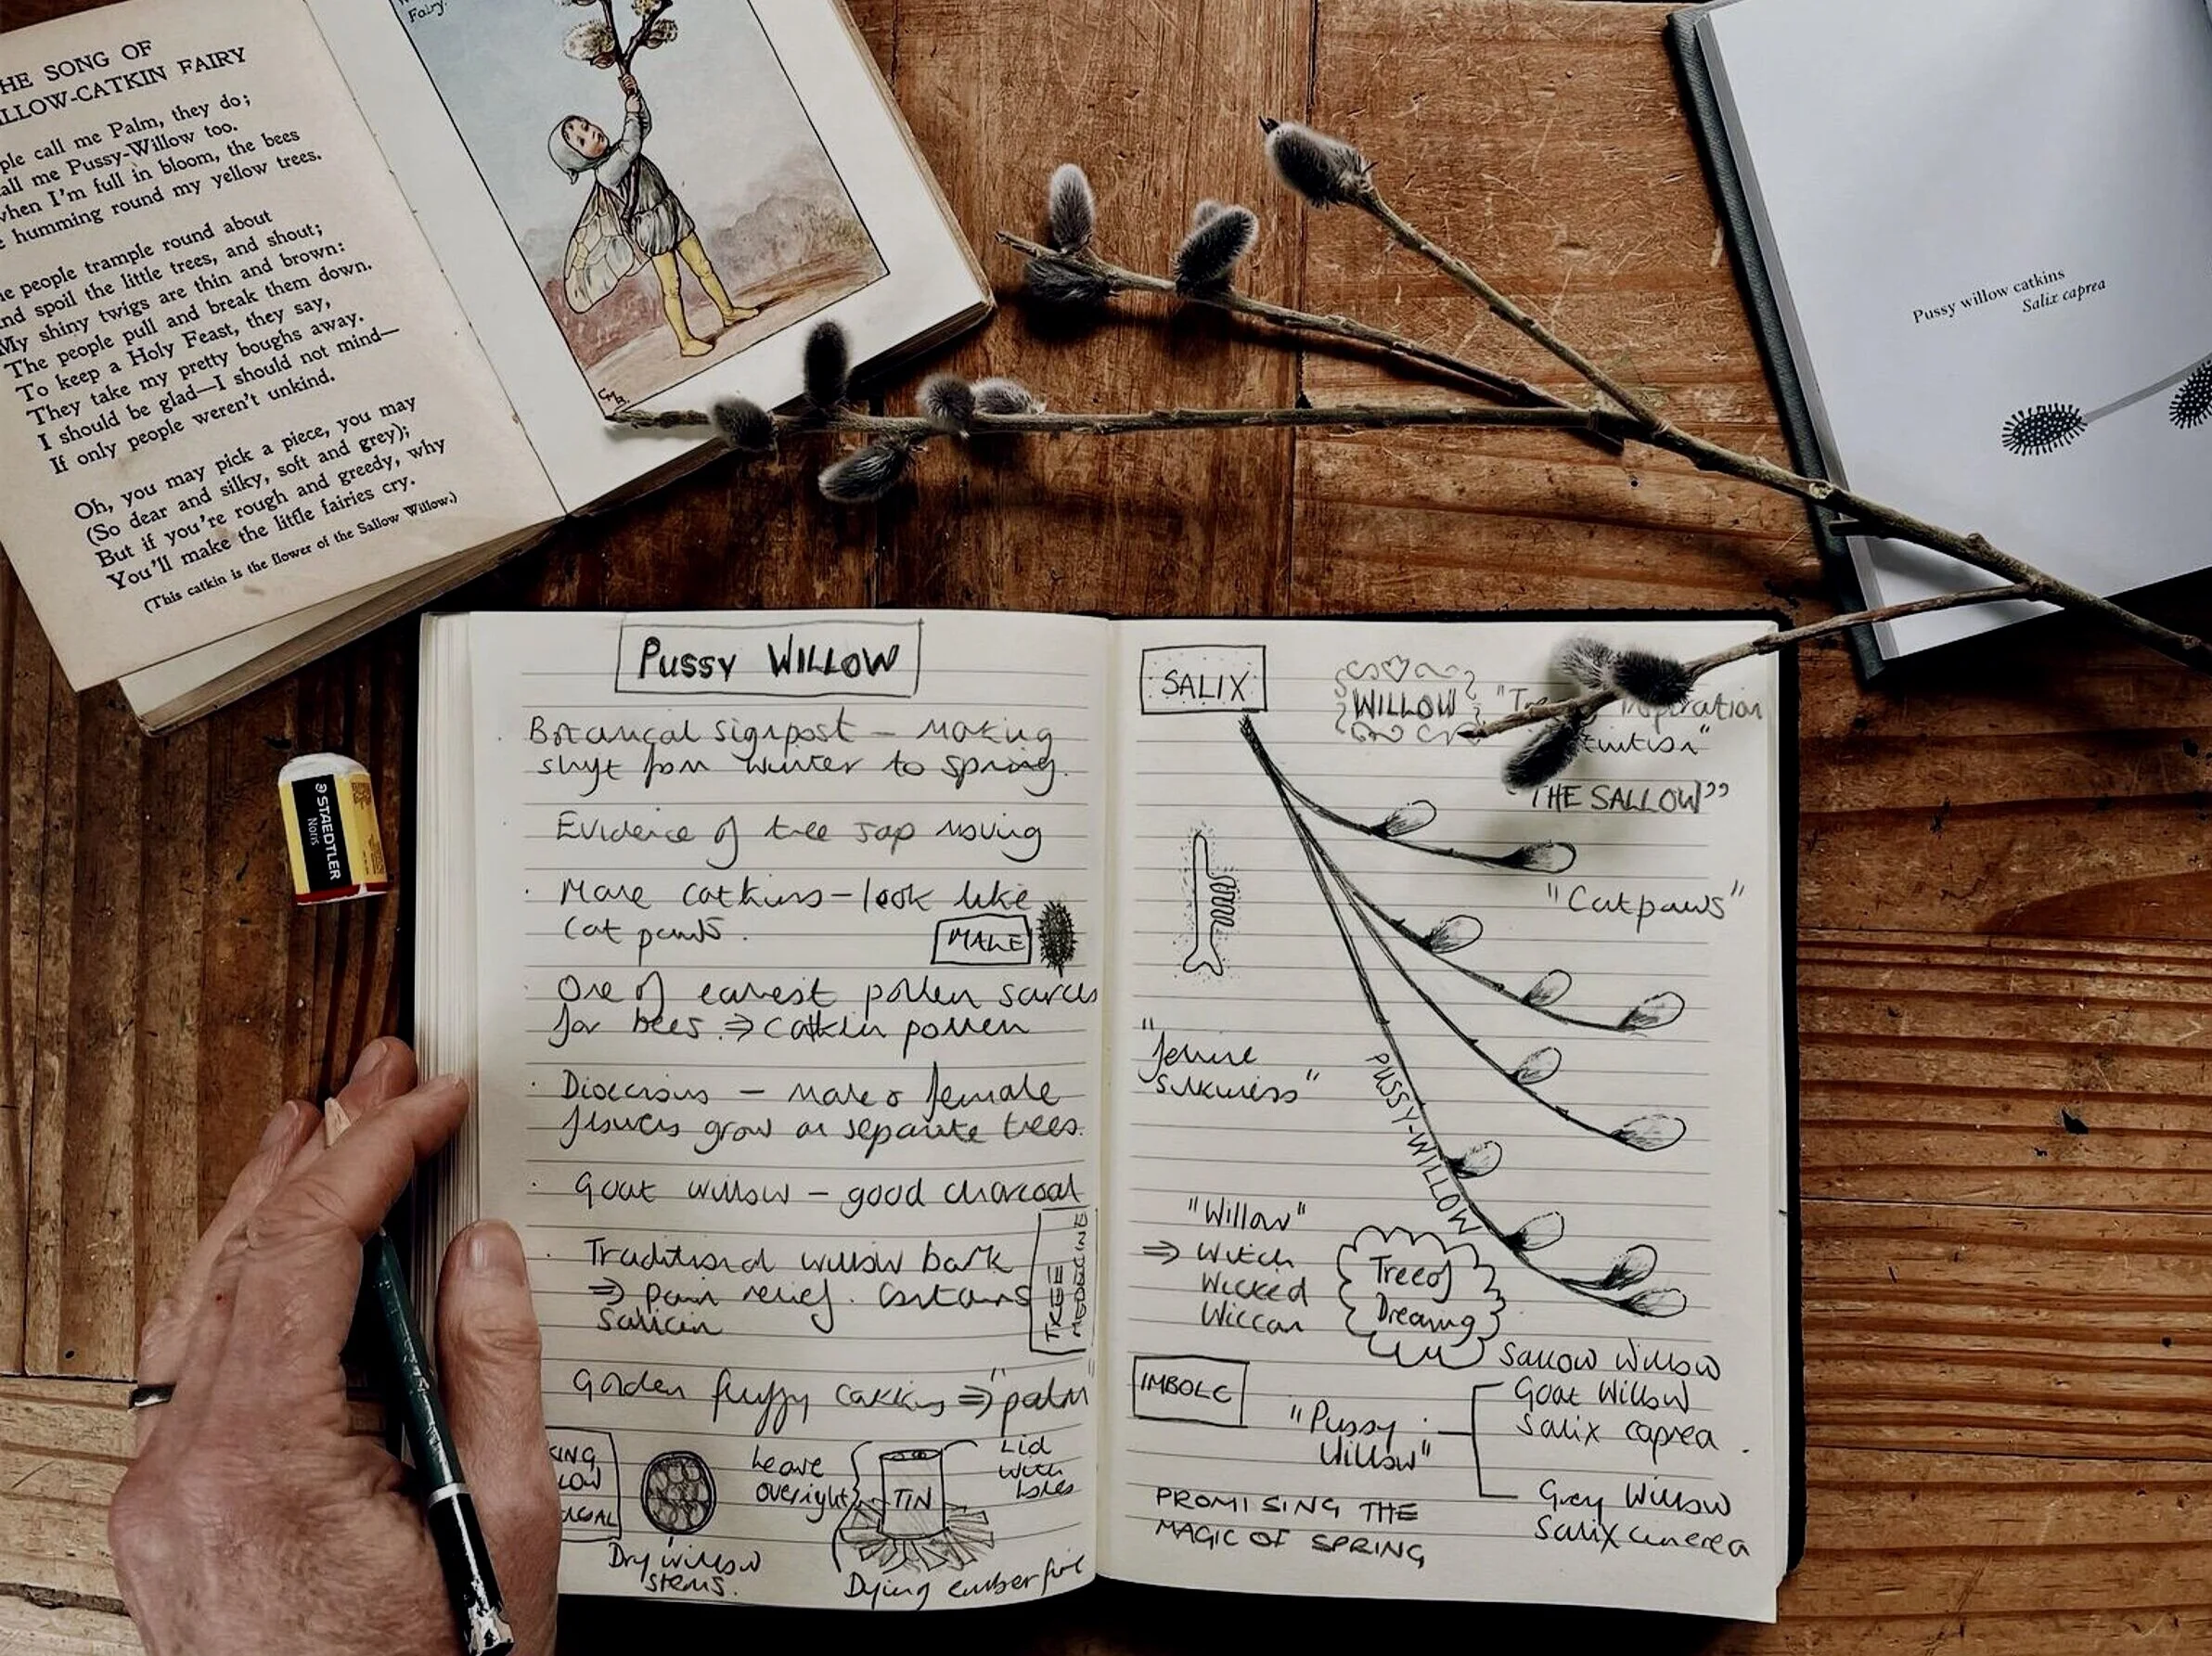 HE SONG OF
LLOW-CATKIN FAIRY
ple call me Palm, they do;
all me Pussy-Willow too.
when I'm full in bloom, the bees
humming round my yellow trees.
e people trample round about
nd spoil the little trees, and shout;
My shiny twigs are thin and brown:
The people pull and break them down.
To keep a Holy Feast, they say,
They take my pretty boughs away.
I should be glad—I should not mind—
If only people weren't unkind.
Oh, you may pick a piece, you may
(So dear and silky, soft and grey);
But if you're rough and greedy, why
You'll make the little fairies cry.
(This catkin is the flower of the Sallow Willow.)
Fairy.
CMB.
Pussy willow catkins
Salix caprea
STAEDTLER
Noris
PUSSY WILLOW
Botanical signpost – making
shift from winter to spring.
Evidence of tree sap moving
· Male catkins – look like
cat paws.
MALE
· One of earliest pollen sources
for bees. ⇒ catkin pollen
· Dioecious – male & female
flowers grow on separate trees.
· Goat willow – good charcoal
· Traditional willow bark
⇒ pain relief. Contains
Salicin
TREE
MEDECINE
Golden fluffy catkins ⇒ "palm
KING
LOW
COAL
Dry willow
stems.
Leave
overnight
TIN
Lid
with
holes
Dying ember fire
SALIX
WILLOW
Inspiration
"THE SALLOW"
"Catpaws"
silkiness"
PUSSY-WILLOW
"Willow"
⇒ Witch
Wicked
Wiccan
Tree of
Dreaming
IMBOLC
"Pussy
Willow"
Sallow Willow
Goat Willow
Salix caprea.
Grey Willow
Salix cinerea
PROMISING THE
MAGIC OF SPRING